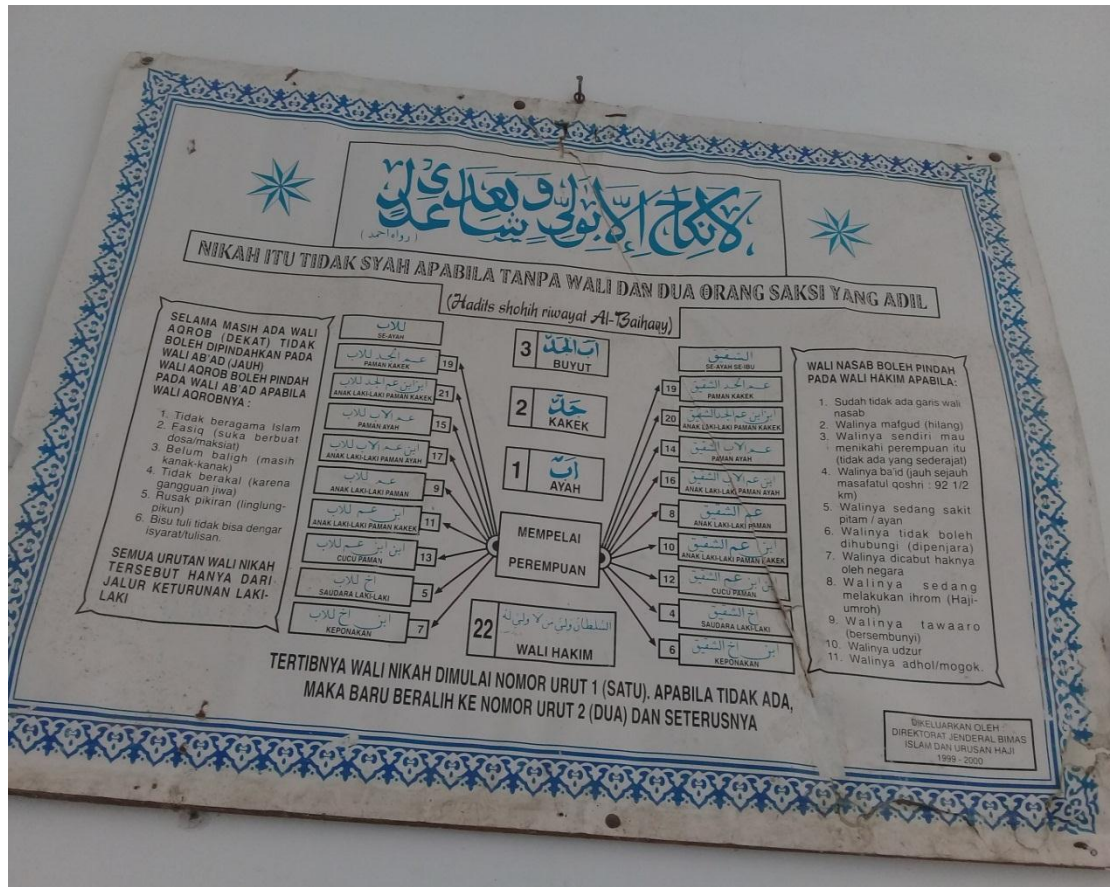 لَانِكَاحَ إِلَّا بِوَلِيٍّ وَشَاهِدَيْ عَدْلٍ
(رواه احمد)
NIKAH ITU TIDAK SYAH APABILA TANPA WALI DAN DUA ORANG SAKSI YANG ADIL
(Hadits shohih riwayat Al-Baihaqy)
SELAMA MASIH ADA WALI
AQROB (DEKAT) TIDAK
BOLEH DIPINDAHKAN PADA
WALI AB'AD (JAUH)
WALI AQROB BOLEH PINDAH
PADA WALI AB'AD APABILA
WALI AQROBNYA :
1. Tidak beragama Islam
2. Fasiq (suka berbuat
dosa/maksiat)
3. Belum baligh (masih
kanak-kanak)
4. Tidak berakal (karena
gangguan jiwa)
5. Rusak pikiran (linglung-
pikun)
6. Bisu tuli tidak bisa dengar
isyarat/tulisan.
SEMUA URUTAN WALI NIKAH
TERSEBUT HANYA DARI
JALUR KETURUNAN LAKI-
LAKI
للاب
SE-AYAH
عم الجد للاب
PAMAN KAKEK
19
ابن ابن عم الجد للاب
ANAK LAKI-LAKI PAMAN KAKEK
21
عم الاب للاب
PAMAN AYAH
15
ابن عم الاب للاب
ANAK LAKI-LAKI PAMAN AYAH
17
عم للاب
ANAK LAKI-LAKI PAMAN
9
ابن عم للاب
ANAK LAKI-LAKI PAMAN KAKEK
11
ابن ابن عم للاب
CUCU PAMAN
13
اخ للاب
SAUDARA LAKI-LAKI
5
ابن اخ للاب
KEPONAKAN
7
3
اب الجد
BUYUT
2
جد
KAKEK
1
اب
AYAH
MEMPELAI
PEREMPUAN
22
السلطان ولي من لا ولي له
WALI HAKIM
الشقيق
SE-AYAH SE-IBU
19
عم الجد الشقيق
PAMAN KAKEK
20
ابن ابن عم الجد الشقيق
ANAK LAKI-LAKI PAMAN KAKEK
14
عم الاب الشقيق
PAMAN AYAH
16
ابن عم الاب الشقيق
ANAK LAKI-LAKI PAMAN AYAH
8
عم الشقيق
ANAK LAKI-LAKI PAMAN
10
ابن عم الشقيق
ANAK LAKI-LAKI PAMAN KAKEK
12
ابن ابن عم الشقيق
CUCU PAMAN
4
اخ الشقيق
SAUDARA LAKI-LAKI
6
ابن اخ الشقيق
KEPONAKAN
WALI NASAB BOLEH PINDAH
PADA WALI HAKIM APABILA:
1. Sudah tidak ada garis wali
nasab
2. Walinya mafgud (hilang)
3. Walinya sendiri mau
menikahi perempuan itu
(tidak ada yang sederajat)
4. Walinya ba'id (jauh sejauh
masafatul qoshri : 92 1/2
km)
5. Walinya sedang sakit
pitam / ayan
6. Walinya tidak boleh
dihubungi (dipenjara)
7. Walinya dicabut haknya
oleh negara
8. Walinya sedang
melakukan ihrom (Haji-
umroh)
9. Walinya tawaaro
(bersembunyi)
10. Walinya udzur
11. Walinya adhol/mogok.
TERTIBNYA WALI NIKAH DIMULAI NOMOR URUT 1 (SATU). APABILA TIDAK ADA,
MAKA BARU BERALIH KE NOMOR URUT 2 (DUA) DAN SETERUSNYA
DIKELUARKAN OLEH :
DIREKTORAT JENDERAL BIMAS
ISLAM DAN URUSAN HAJI
1999 - 2000